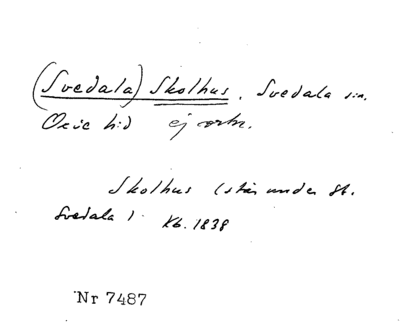 (Svedala) Skolhus. Svedala sn.
Oxie hd ej ortn.
Skolhus (står under St.
Svedala). Kb. 1838
Nr 7487